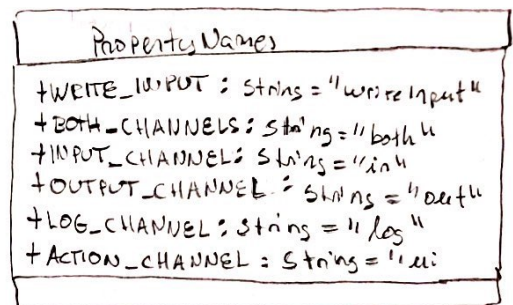 PropertyNames
+WRITE_INPUT : String = "writeInput"
+BOTH_CHANNELS : String = "both"
+INPUT_CHANNEL : String = "in"
+OUTPUT_CHANNEL : String = "out"
+LOG_CHANNEL : String = "log"
+ACTION_CHANNEL : String = "ui